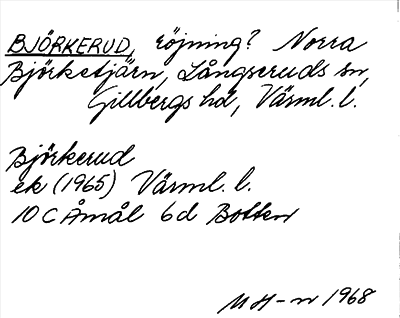 BJÖRKERUD, röjning? Norra
Björketjärn, Långseruds sn,
Gillbergs hd, Värml. l.
Björkerud
ek (1965) Värml. l.
10 C Åmål 6 d Botten
M H-n 1968